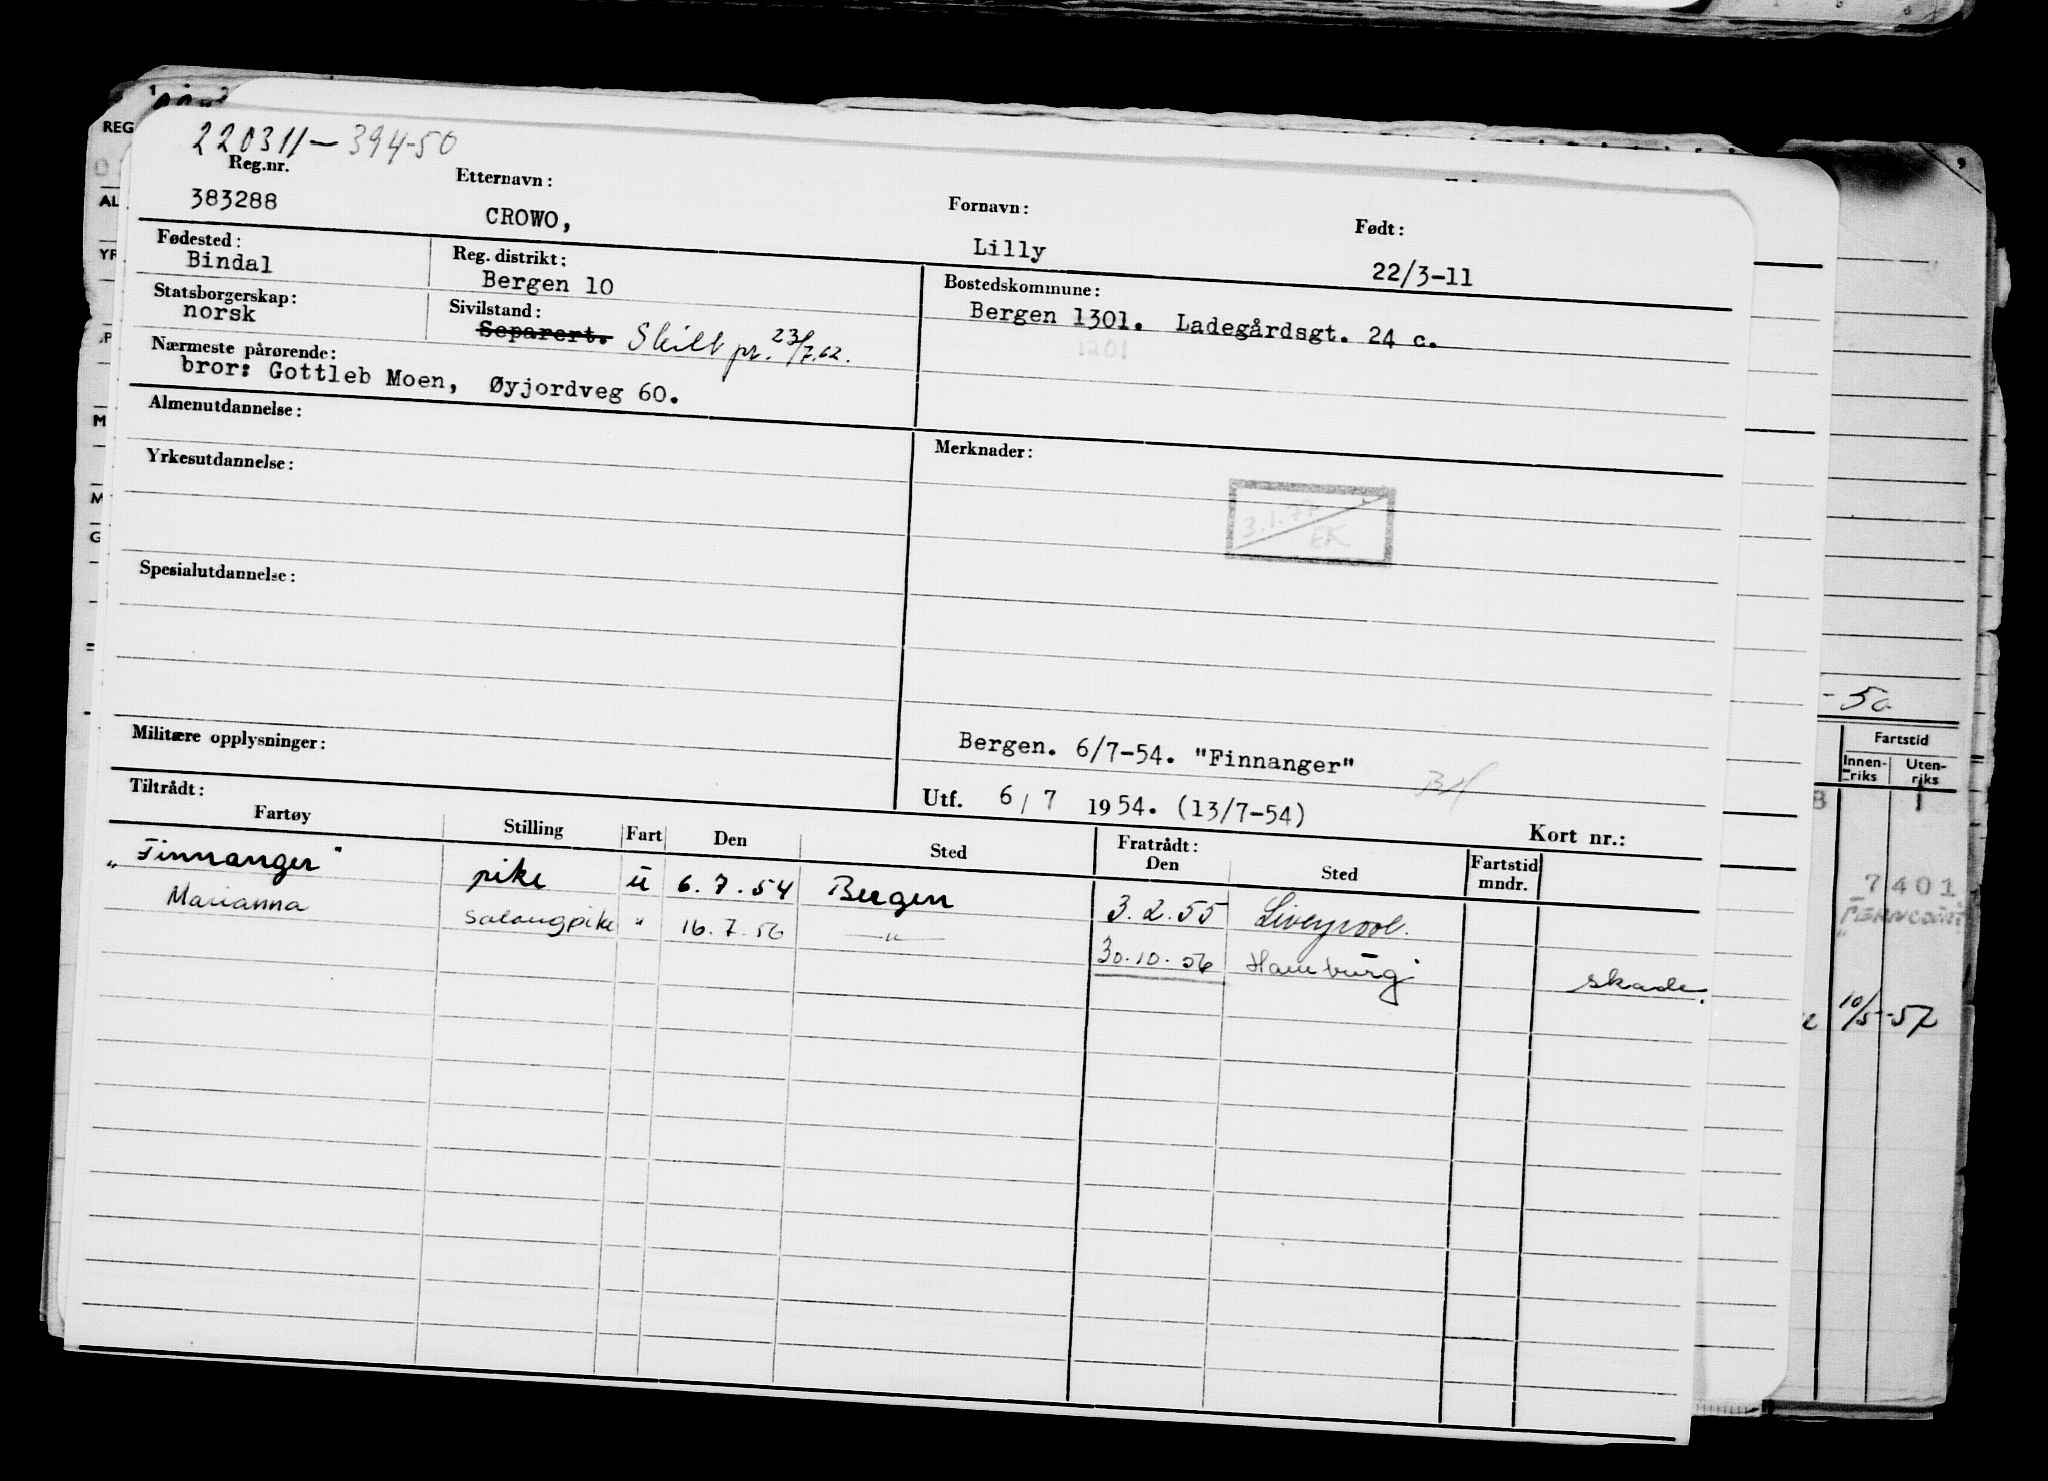 220311-394-50
Reg.nr. Etternavn: Fornavn: Født:
383288 CROWO, Lilly 22/3-11
Fødested: Reg. distrikt: Bostedskommune:
Bindal Bergen 10 Bergen 1301. Ladegårdsgt. 24 c.
1201
Statsborgerskap: Sivilstand:
norsk Separert. Skilt pr. 23/7.62.
Nærmeste pårørende:
bror: Gottleb Moen, Øyjordveg 60.
Almenutdannelse: Merknader:
Yrkesutdannelse:
EK
Spesialutdannelse:
Militære opplysninger: Bergen. 6/7-54. "Finnanger"
Utf. 6/7 1954. (13/7-54) Kort nr.:
Tiltrådt: Fratrådt:
Fartøy Stilling Fart Den Sted Den Sted Fartstid mndr.
„Finnanger" pike u 6.7.54 Bergen 3.2.55 Liverpool.
Marianna salongpike " 16.7.56 —"— 30.10.56 Hamburg skade.
REG
AL
YR
M
M
G
-50
Fartstid
Innen-riks Uten-riks
7401
10/5-57